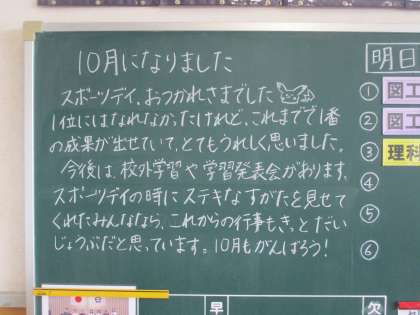 10月になりました
スポーツデイ、おつかれさまでした
1位にはなれなかったけれど、これまでで1番
の成果が出せていて、とてもうれしく思いました。
今後は、校外学習や学習発表会があります。
スポーツデイの時にステキなすがたを見せて
くれたみんななら、これからの行事もきっとだい
じょうぶだと思っています。10月もがんばろう!
明日
① 図工
② 図工
③ 理科
④
⑤
⑥
早
欠